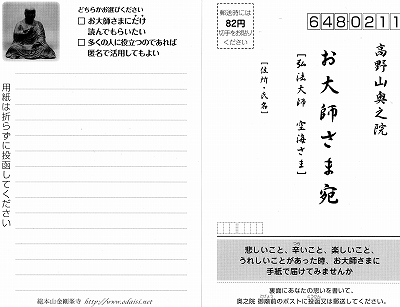 どちらかお選びください
□ お大師さまにだけ
読んでもらいたい
□ 多くの人に役立つのであれば
匿名で活用してもよい
用紙は折らずに投函してください
総本山金剛峯寺 http://www.odaisi.net
郵送時には
82円
切手をお貼り
ください
6480211
高野山奥之院
お大師さま宛
[弘法大師 空海さま]
[住所・氏名]
悲しいこと、辛いこと、楽しいこと、
うれしいことがあった時、お大師さまに
手紙で届けてみませんか
裏面にあなたの思いを書いて、
奥之院 御廟前のポストに投函又は郵送してください。